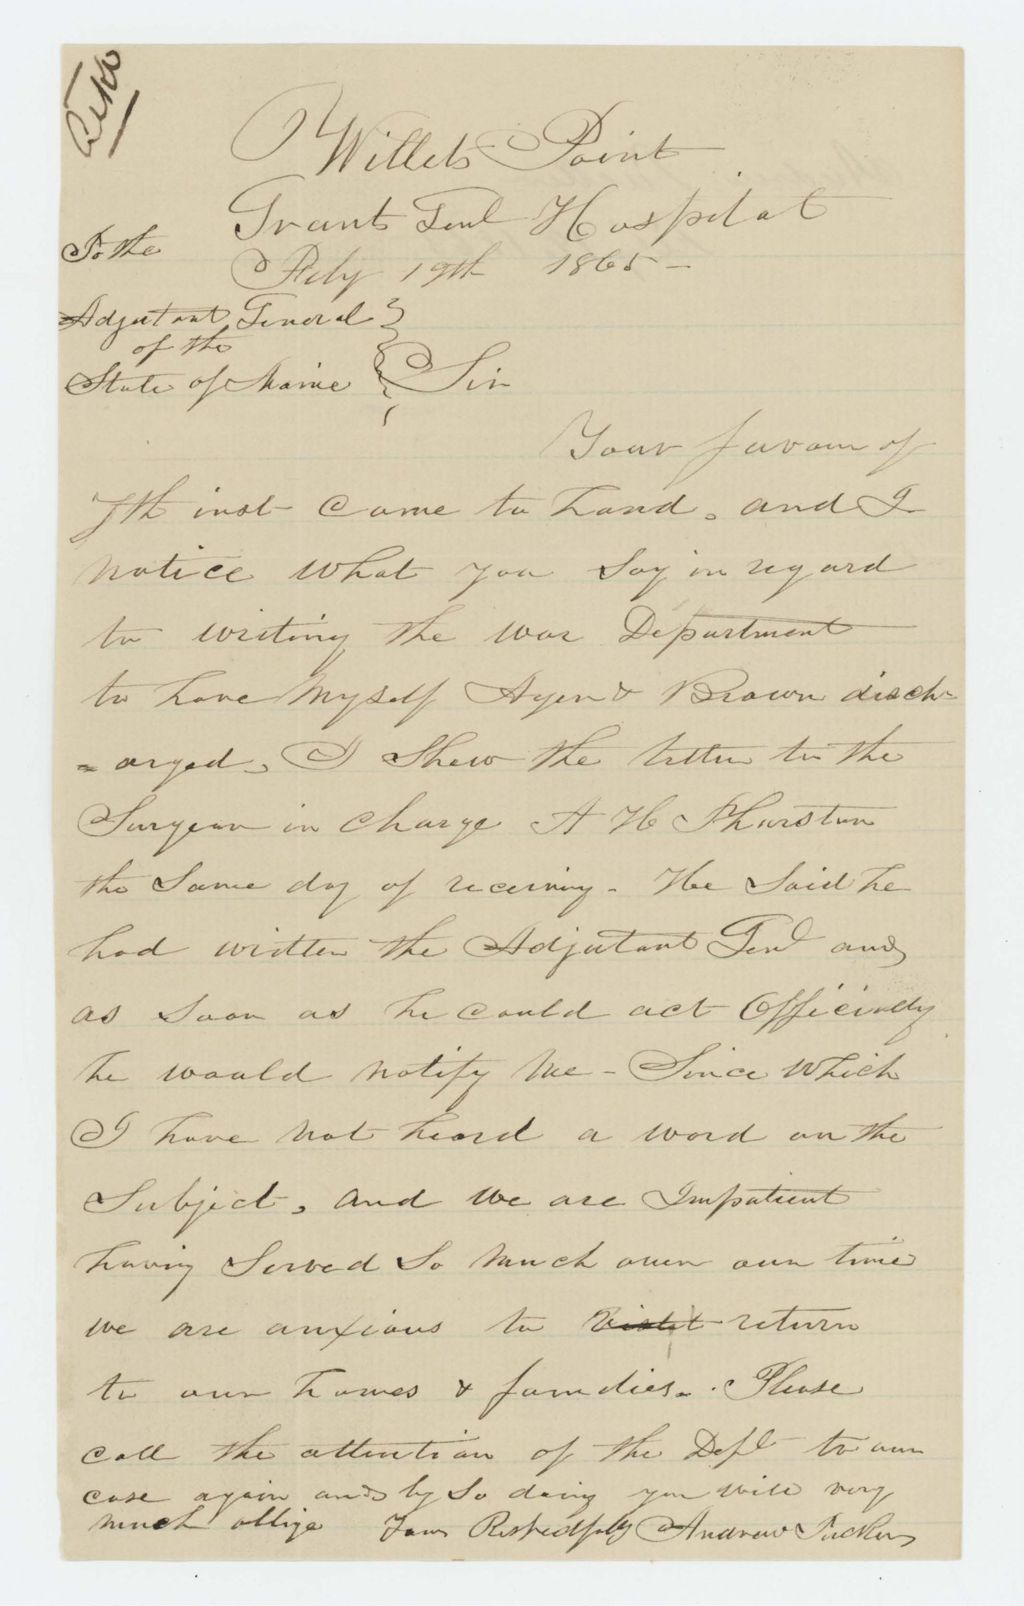 Willets Point
Grants Genl Hospital
Feby 19th 1865 -
To the
Adjutant General
of the
State of Maine } Sir
Your favour of
7th inst came to hand, and I
notice what you say in regard
to writing the war Department
to have myself Ayer & Brown disch-
=arged, I Shew the letter to the
Surgeon in charge A H Thurston
the Same day of receiving - He Said he
had written the Adjutant Genl and
as Soon as he could act Officially
he would notify me - Since which
I have not heard a word on the
Subject, and we are Impatient
having Served So much over our time
we are anxious to return
to our homes & families. Please
call the attention of the Dept to our
case again and by So doing you will very
much oblige Yours Respectfully Andrew Tucker